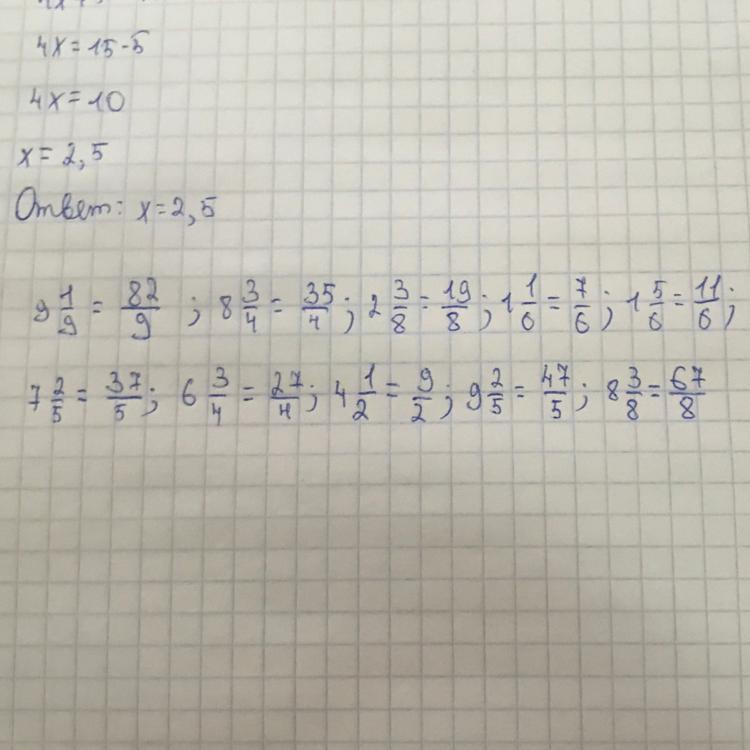 4x = 15 - 5
4x = 10
x = 2,5
Ответ: x = 2,5
9 1/9 = 82/9 ; 8 3/4 = 35/4 ; 2 3/8 = 19/8 ; 1 1/6 = 7/6 ; 1 5/6 = 11/6 ;
7 2/5 = 37/5 ; 6 3/4 = 27/4 ; 4 1/2 = 9/2 ; 9 2/5 = 47/5 ; 8 3/8 = 67/8